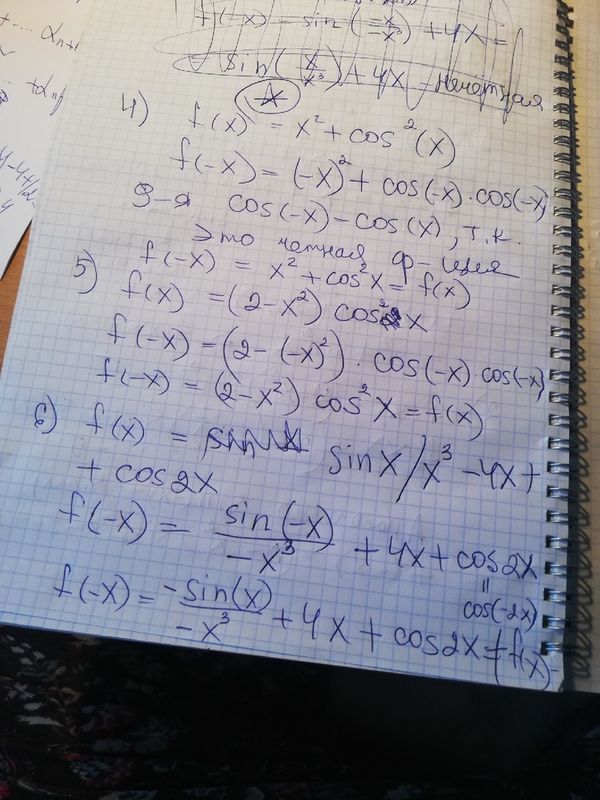 f(-x) = sin (-x/-x³) + 4x =
= sin(x/x³) + 4x нечётная
4) f(x) = x² + cos²(x)
f(-x) = (-x)² + cos(-x)·cos(-x)
cos(-x) - cos(x), т.к.
это четная ф-ция
f(-x) = x² + cos²x = f(x)
5) f(x) = (2-x²) cos²x
f(-x) = (2-(-x)²) · cos(-x) cos(-x)
f(-x) = (2-x²) cos²x = f(x)
6) f(x) = sinx/x³ - 4x +
+ cos2x
f(-x) = sin(-x)/-x³ + 4x + cos2x
=
cos(-2x)
f(-x) = -sin(x)/-x³ + 4x + cos2x ≠ f(x)